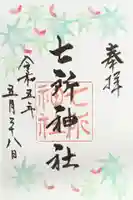 奉拝
七所神社
令和五年
五月二十八日